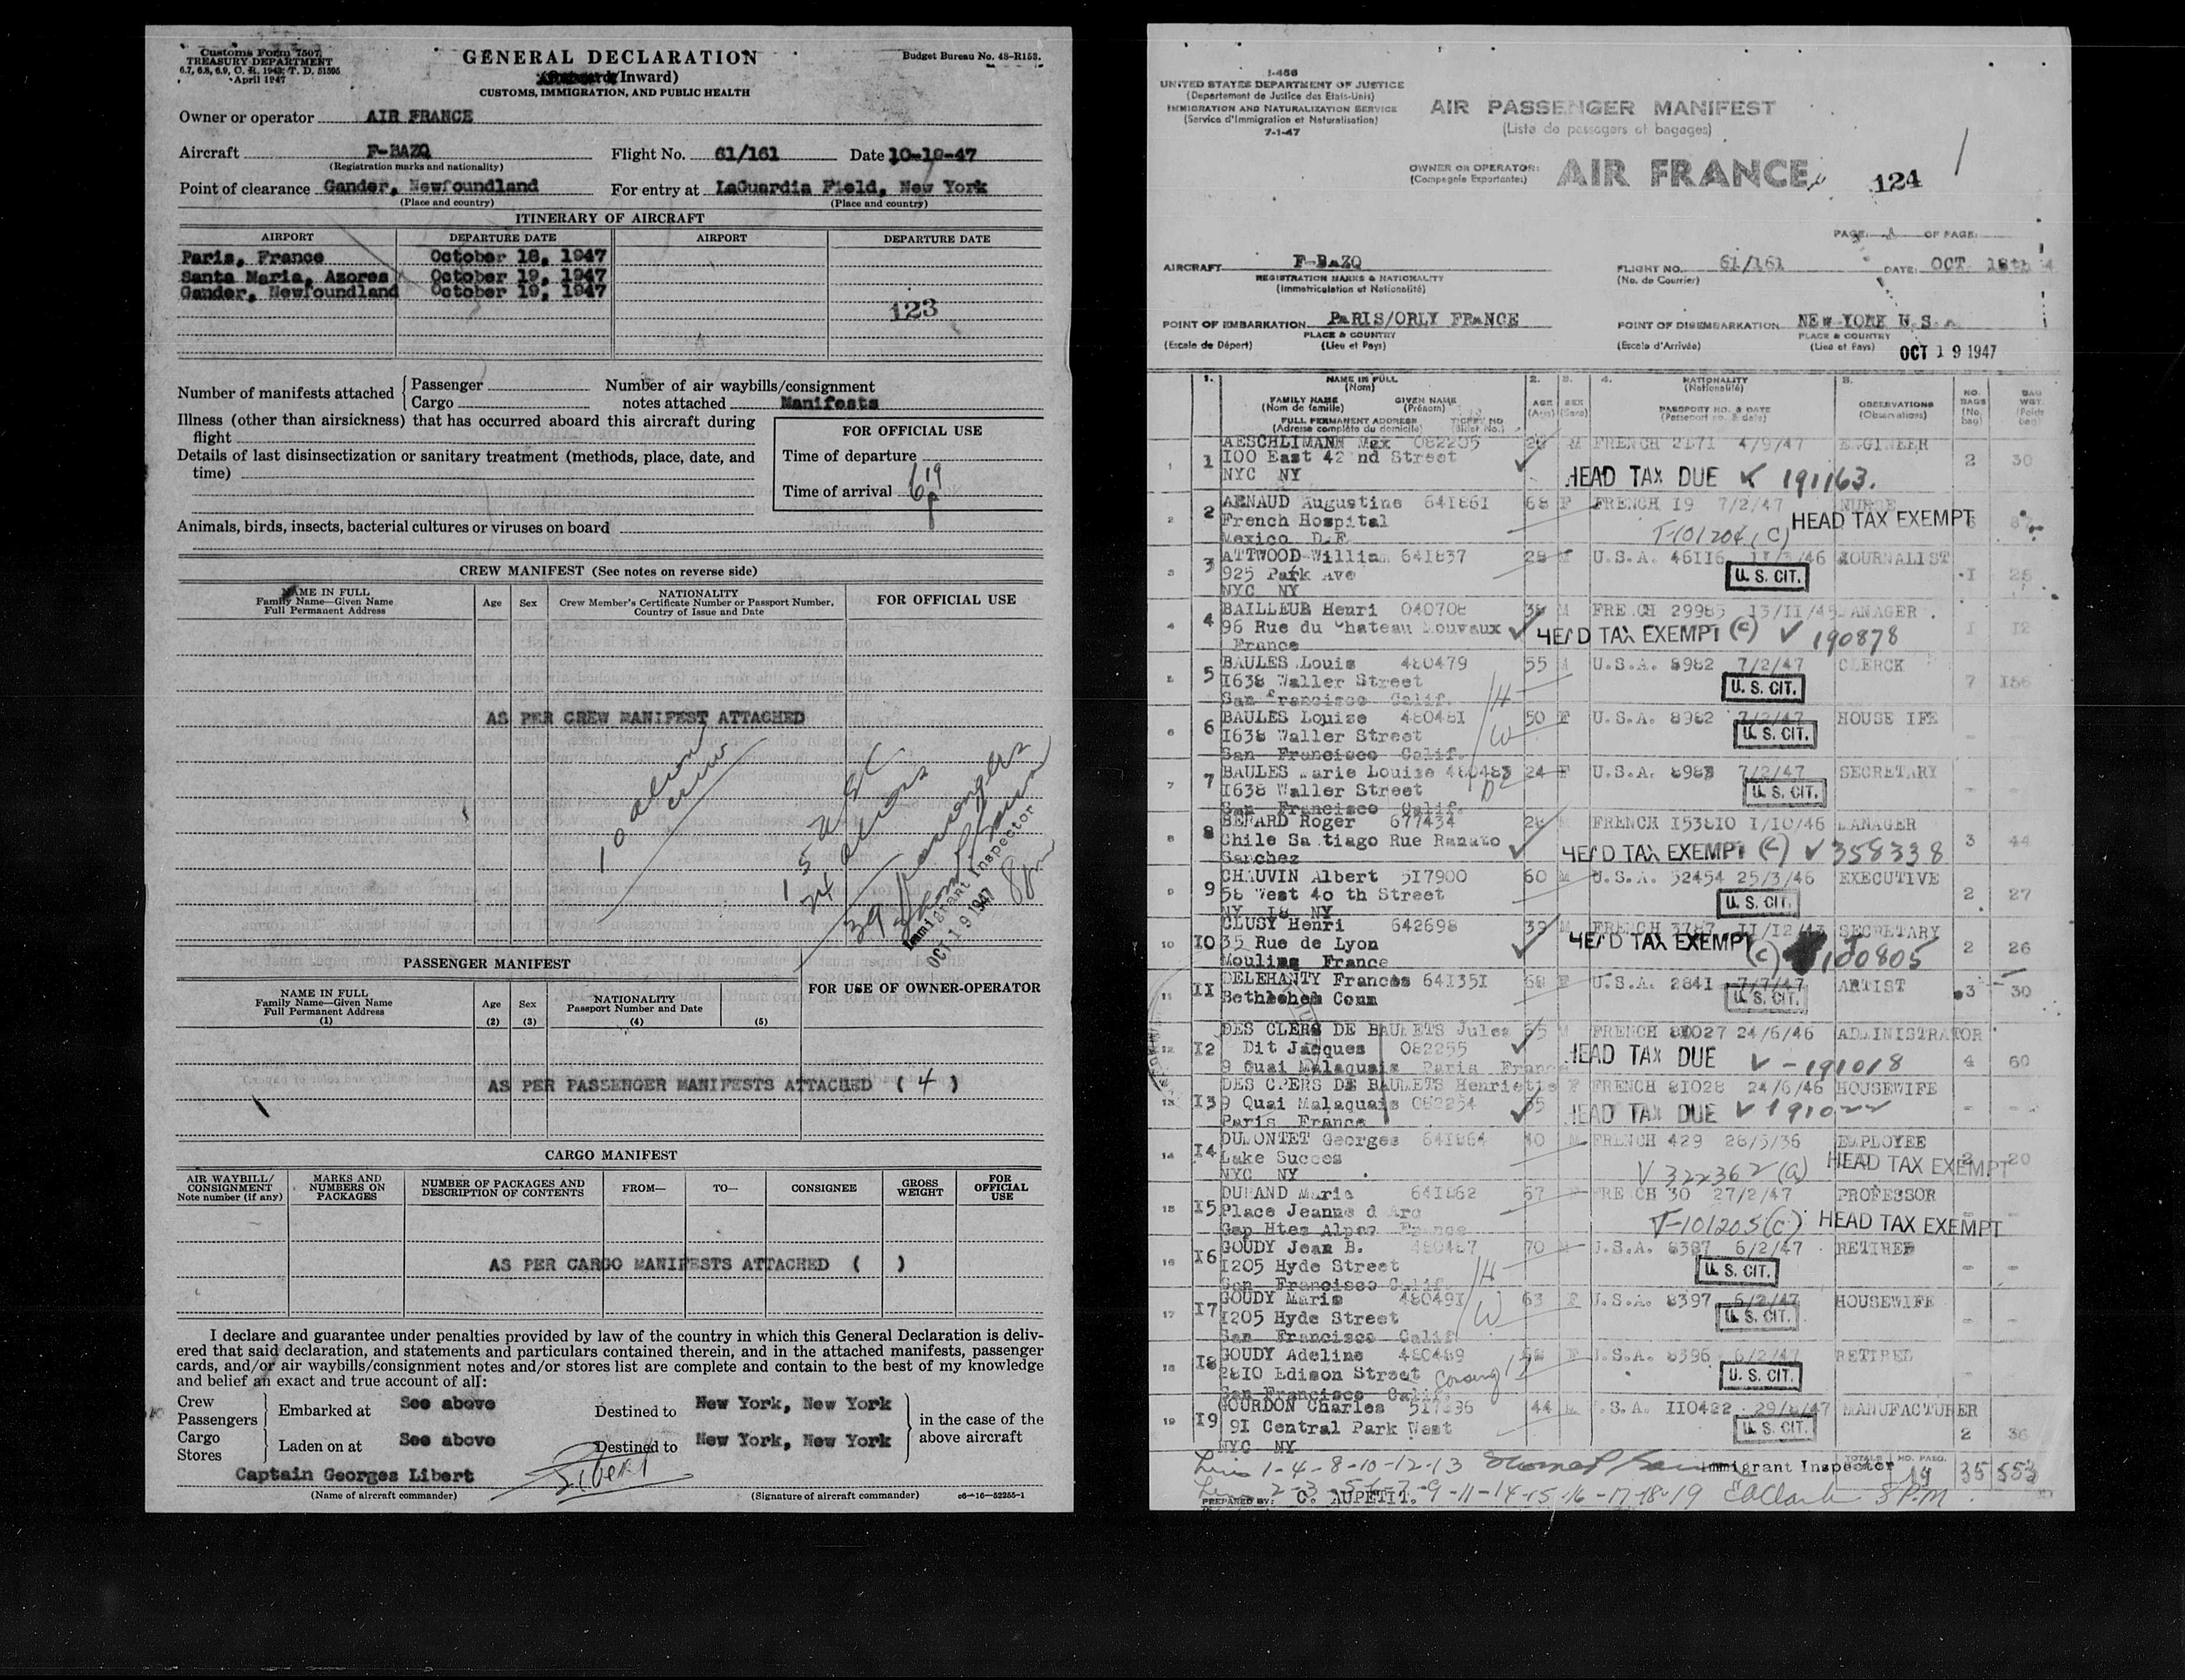 Customs Form 7507
TREASURY DEPARTMENT
6.7, 6.8, 6.9, C. R. 1943; T. D. 51595
April 1947
GENERAL DECLARATION
Inward)
CUSTOMS, IMMIGRATION, AND PUBLIC HEALTH
Budget Bureau No. 48-R153.
Owner or operator AIR FRANCE
Aircraft F-BAZQ Flight No. 61/161 Date 10-19-47
(Registration marks and nationality)
Point of clearance Gander, Newfoundland For entry at LaGuardia Field, New York
(Place and country) (Place and country)
ITINERARY OF AIRCRAFT
AIRPORT DEPARTURE DATE AIRPORT DEPARTURE DATE
Paris, France October 18, 1947
Santa Maria, Azores October 19, 1947
Gander, Newfoundland October 19, 1947
123
Number of manifests attached { Passenger Number of air waybills/consignment
Cargo notes attached Manifests
Illness (other than airsickness) that has occurred aboard this aircraft during
flight
Details of last disinsectization or sanitary treatment (methods, place, date, and
time)
FOR OFFICIAL USE
Time of departure
Time of arrival 6 19 P
Animals, birds, insects, bacterial cultures or viruses on board
CREW MANIFEST (See notes on reverse side)
NAME IN FULL
Family Name—Given Name
Full Permanent Address
Age Sex
NATIONALITY
Crew Member's Certificate Number or Passport Number,
Country of Issue and Date
FOR OFFICIAL USE
AS PER CREW MANIFEST ATTACHED
10 alien
crew
15 USC
24 aliens
39 passengers
Immigrant Inspector
OCT 19 1947
8 pm
PASSENGER MANIFEST
NAME IN FULL
Family Name—Given Name
Full Permanent Address
(1)
Age
(2)
Sex
(3)
NATIONALITY
Passport Number and Date
(4) (5)
FOR USE OF OWNER-OPERATOR
AS PER PASSENGER MANIFESTS ATTACHED ( 4 )
CARGO MANIFEST
AIR WAYBILL/
CONSIGNMENT
Note number (if any)
MARKS AND
NUMBERS ON
PACKAGES
NUMBER OF PACKAGES AND
DESCRIPTION OF CONTENTS
FROM— TO— CONSIGNEE
GROSS
WEIGHT
FOR
OFFICIAL
USE
AS PER CARGO MANIFESTS ATTACHED ( )
I declare and guarantee under penalties provided by law of the country in which this General Declaration is deliv-
ered that said declaration, and statements and particulars contained therein, and in the attached manifests, passenger
cards, and/or air waybills/consignment notes and/or stores list are complete and contain to the best of my knowledge
and belief an exact and true account of all:
Crew
Passengers } Embarked at See above Destined to New York, New York
Cargo
Stores } Laden on at See above Destined to New York, New York
in the case of the
above aircraft
Captain Georges Libert Libert
(Name of aircraft commander) (Signature of aircraft commander) c6—16—52255-1
I-466
UNITED STATES DEPARTMENT OF JUSTICE
(Departement de Justice des Etats-Unis)
IMMIGRATION AND NATURALIZATION SERVICE
(Service d'Immigration et Naturalisation)
7-1-47
AIR PASSENGER MANIFEST
(Liste de passagers et bagages)
OWNER OR OPERATOR: AIR FRANCE
(Compagnie Exportante:)
124
PAGE: OF PAGE:
AIRCRAFT F-BAZQ FLIGHT NO. 61/161 DATE: OCT 18th
REGISTRATION MARKS & NATIONALITY (No. de Courrier)
(Immatriculation et Nationalité)
POINT OF EMBARKATION PARIS/ORLY FRANCE POINT OF DISEMBARKATION NEW YORK U.S.A
PLACE & COUNTRY PLACE & COUNTRY
(Escale de Départ) (Lieu et Pays) (Escale d'Arrivée) (Lieu et Pays) OCT 19 1947
1. NAME IN FULL (Nom) 2. 3. 4. NATIONALITY (Nationalité) 5. NO. BAGS (No. bag) BAG WGT. (Poids bag)
FAMILY NAME (Nom de famille) GIVEN NAME (Prénom) AGE (Age) SEX (Sexe) PASSPORT NO. & DATE (Passeport no. & date) OBSERVATIONS (Observations)
FULL PERMANENT ADDRESS (Adresse complète du domicile) TICKET NO (Billet No.)
1 AESCHLIMANN Max 082205 M FRENCH 2171 4/9/47 ENGINEER
100 East 42 nd Street 2 30
NYC NY HEAD TAX DUE 191163.
2 ARNAUD Augustine 641861 68 F FRENCH 19 7/2/47 NURSE
French Hospital HEAD TAX EXEMPT
Mexico D.F. T-101204 (C)
3 ATTWOOD William 641837 28 U.S.A. 46116 46 JOURNALIST
925 Park Ave U. S. CIT. 1
NYC NY
4 BAILLEUR Henri 040708 M FRENCH 29985 13/11/45 MANAGER
96 Rue du Chateau Mouvaux HEAD TAX EXEMPT (C) 190878 1 12
France
5 BAULES Louis 480479 55 U.S.A. 8982 7/2/47 CLERCK
1638 Waller Street /H U. S. CIT. 7 156
San Francisco Calif.
6 BAULES Louise 480481 50 F U.S.A. 8982 7/2/47 HOUSE IFE
1638 Waller Street /W U. S. CIT.
San Francisco Calif.
7 BAULES Marie Louise 480483 24 F U.S.A. 8983 7/2/47 SECRETARY
1638 Waller Street U. S. CIT.
San Francisco Calif.
8 BERARD Roger 677434 28 FRENCH 153810 1/10/46 MANAGER
Chile Sa tiago Rue Ranato HEAD TAX EXEMPT (C) 358338 3 44
Sanchez
9 CHAUVIN Albert 517900 60 M U.S.A. 52454 25/3/46 EXECUTIVE
58 West 40 th Street U. S. CIT. 2 27
NY 18 NY
10 CLUSY Henri 642698 39 M FRENCH 3787 SECRETARY
35 Rue de Lyon HEAD TAX EXEMPT (C) 190805 2 26
Moulins France
11 DELEHANTY Frances 641351 68 F U.S.A. 2841 7/7/47 ARTIST
Bethlehem Conn U. S. CIT. 3 30
12 DES CLERS DE BAULETS Jules 65 M FRENCH 81027 24/6/46 ADMINISTRATOR
Dit Jacques 082255 HEAD TAX DUE V-191018 4 60
9 Quai Malaquais Paris France
13 DES CLERS DE BAULETS Henriette F FRENCH 81028 24/6/46 HOUSEWIFE
9 Quai Malaquais 082254 55 HEAD TAX DUE V 191022
Paris France
14 DUMONTET Georges 641864 40 M FRENCH 429 28/5/36 EMPLOYEE
Lake Succes HEAD TAX EXEMPT 2 20
NYC NY V 322362 (a)
15 DURAND Marie 641862 67 FRENCH 30 27/2/47 PROFESSOR
Place Jeanne d Arc HEAD TAX EXEMPT
Gap Htes Alpes France T-101205 (C)
16 GOUDY Jean B. 480487 70 M U.S.A. 8397 6/2/47 RETIRED
1205 Hyde Street /H U. S. CIT.
San Francisco Calif.
17 GOUDY Marie 480491 63 F U.S.A. 8397 6/2/47 HOUSEWIFE
1205 Hyde Street /W U. S. CIT.
San Francisco Calif
18 GOUDY Adeline 480489 F U.S.A. 8396 6/2/47 RETIRED
2810 Edison Street U. S. CIT.
San Francisco Calif
19 GOURDON Charles 44 M U.S.A. 110422 47 MANUFACTURER
91 Central Park West U. S. CIT. 2 36
NYC NY
1-4-8-10-12-13 Immigrant Inspector TOTALS NO. PASG. 19 35 553
2-3-5-6-7-9-11-14-15-16-17-18-19 8 P.M
PREPARED BY: C. AUPETIT.